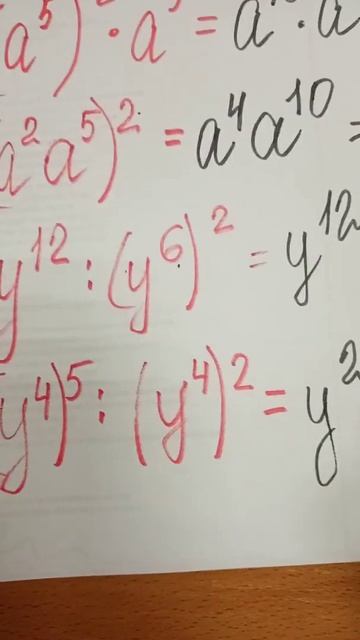 a⁵) · a = a · a
a² a⁵)² = a⁴ a¹⁰ =
y¹² : (y⁶)² = y¹²
y⁴)⁵ : (y⁴)² = y²